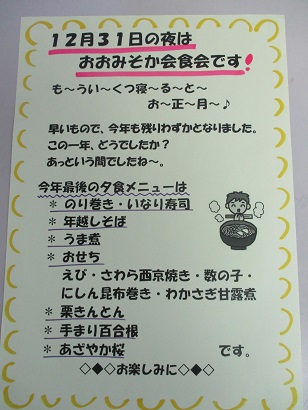 12月31日の夜は
おおみそか会食会です!
も〜うい〜くつ寝〜る〜と〜
お〜正〜月〜♪
早いもので、今年も残りわずかとなりました。
この一年、どうでしたか?
あっという間でしたね〜。
今年最後の夕食メニューは
* のり巻き・いなり寿司
* 年越しそば
* うま煮
* おせち
えび・さわら西京焼き・数の子・
にしん昆布巻き・わかさぎ甘露煮
* 栗きんとん
* 手まり百合根
* あざやか桜 です。
◇◆◇お楽しみに◇◆◇